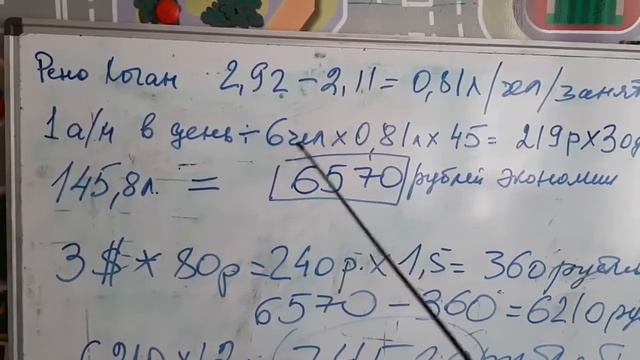 Рено Логан 2,92 - 2,11 = 0,81 л/чел/занят
1 а/м в день ÷ 6 чел × 0,81 л × 45 = 219 р × 30
145,8 л. = 6570 рублей экономии
3 $ * 80р = 240 р. × 1,5 = 360 рубл
6570 - 360 = 6210 ру